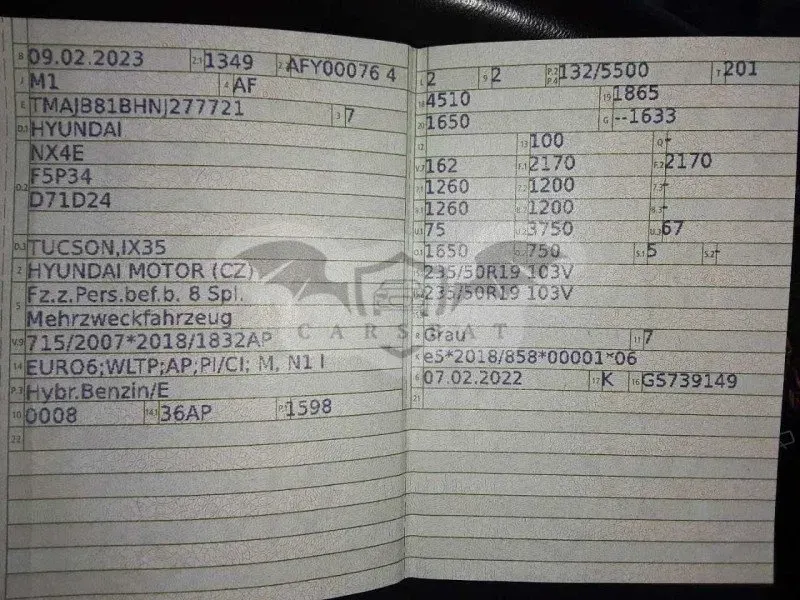 B 09.02.2023 2.1 1349 2.2 AFY00076 4
J M1 4 AF
E TMAJB81BHNJ277721 3 7
D.1 HYUNDAI
D.2 NX4E
F5P34
D71D24
D.3 TUCSON,IX35
2 HYUNDAI MOTOR (CZ)
5 Fz.z.Pers.bef.b. 8 Spl.
Mehrzweckfahrzeug
V.9 715/2007*2018/1832AP
14 EURO6;WLTP;AP;PI/CI; M, N1 I
P.3 Hybr.Benzin/E
10 0008 14.1 36AP P.1 1598
22
L 2 9 2 P.2 P.4 132/5500 T 201
18 4510 19 1865
20 1650 G --1633
12 13 100 Q -
V.7 162 F.1 2170 F.2 2170
7.1 1260 7.2 1200 7.3 -
8.1 1260 8.2 1200 8.3 -
U.1 75 U.2 3750 U.3 67
O.1 1650 O.2 750 S.1 5 S.2 -
235/50R19 103V
235/50R19 103V
R Grau 11 7
K e5*2018/858*00001*06
6 07.02.2022 17 K 16 GS739149
21
CARSBAT